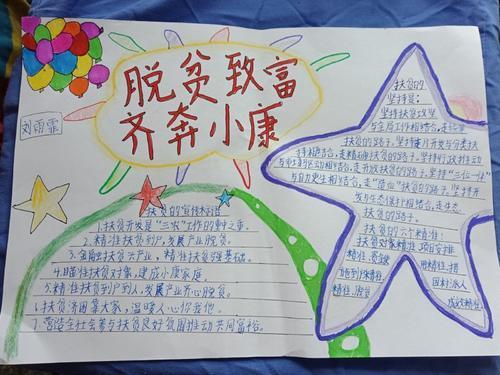 脱贫致富
齐奔小康
刘雨霏
扶贫的宣传标语
1.扶贫开发是"三农"工作的重中之重。
2.精准扶贫到户,发展产业脱贫。
4.瞄准扶贫对象,建成小康家庭
5.精准扶贫到户到人,发展产业齐心脱贫。
6.扶贫济困靠大家,温暖人心你我他。
7.营造全社会参与扶贫良好氛围推动共同富裕。
扶贫的
坚持是:
坚持扶贫攻坚
与全局工作相结合,走统筹
扶贫的路子,坚持连片开发与分类扶
持相结合,走精确扶贫的路子,坚持行政推动
与市场驱动相结合,走开放扶贫的路子,坚持"三位一体"
与自力更生相结合,走"造血"扶贫的路子,坚持开
发与生态保护相结合,走生态
扶贫的路子。
扶贫的六个精准:
扶贫对象精准,项目安排
精准,资金
使用精准,措
施到户精准,
因村派人
精准,脱贫
成效精准。